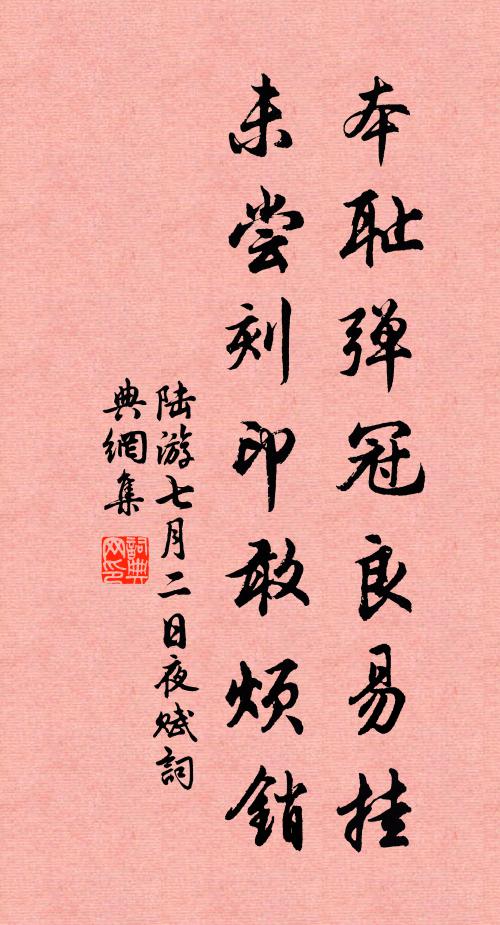 本耻弹冠良易挂
未尝刻印敢烦销
陆游七月二日夜赋詞
典網集
詞典網印